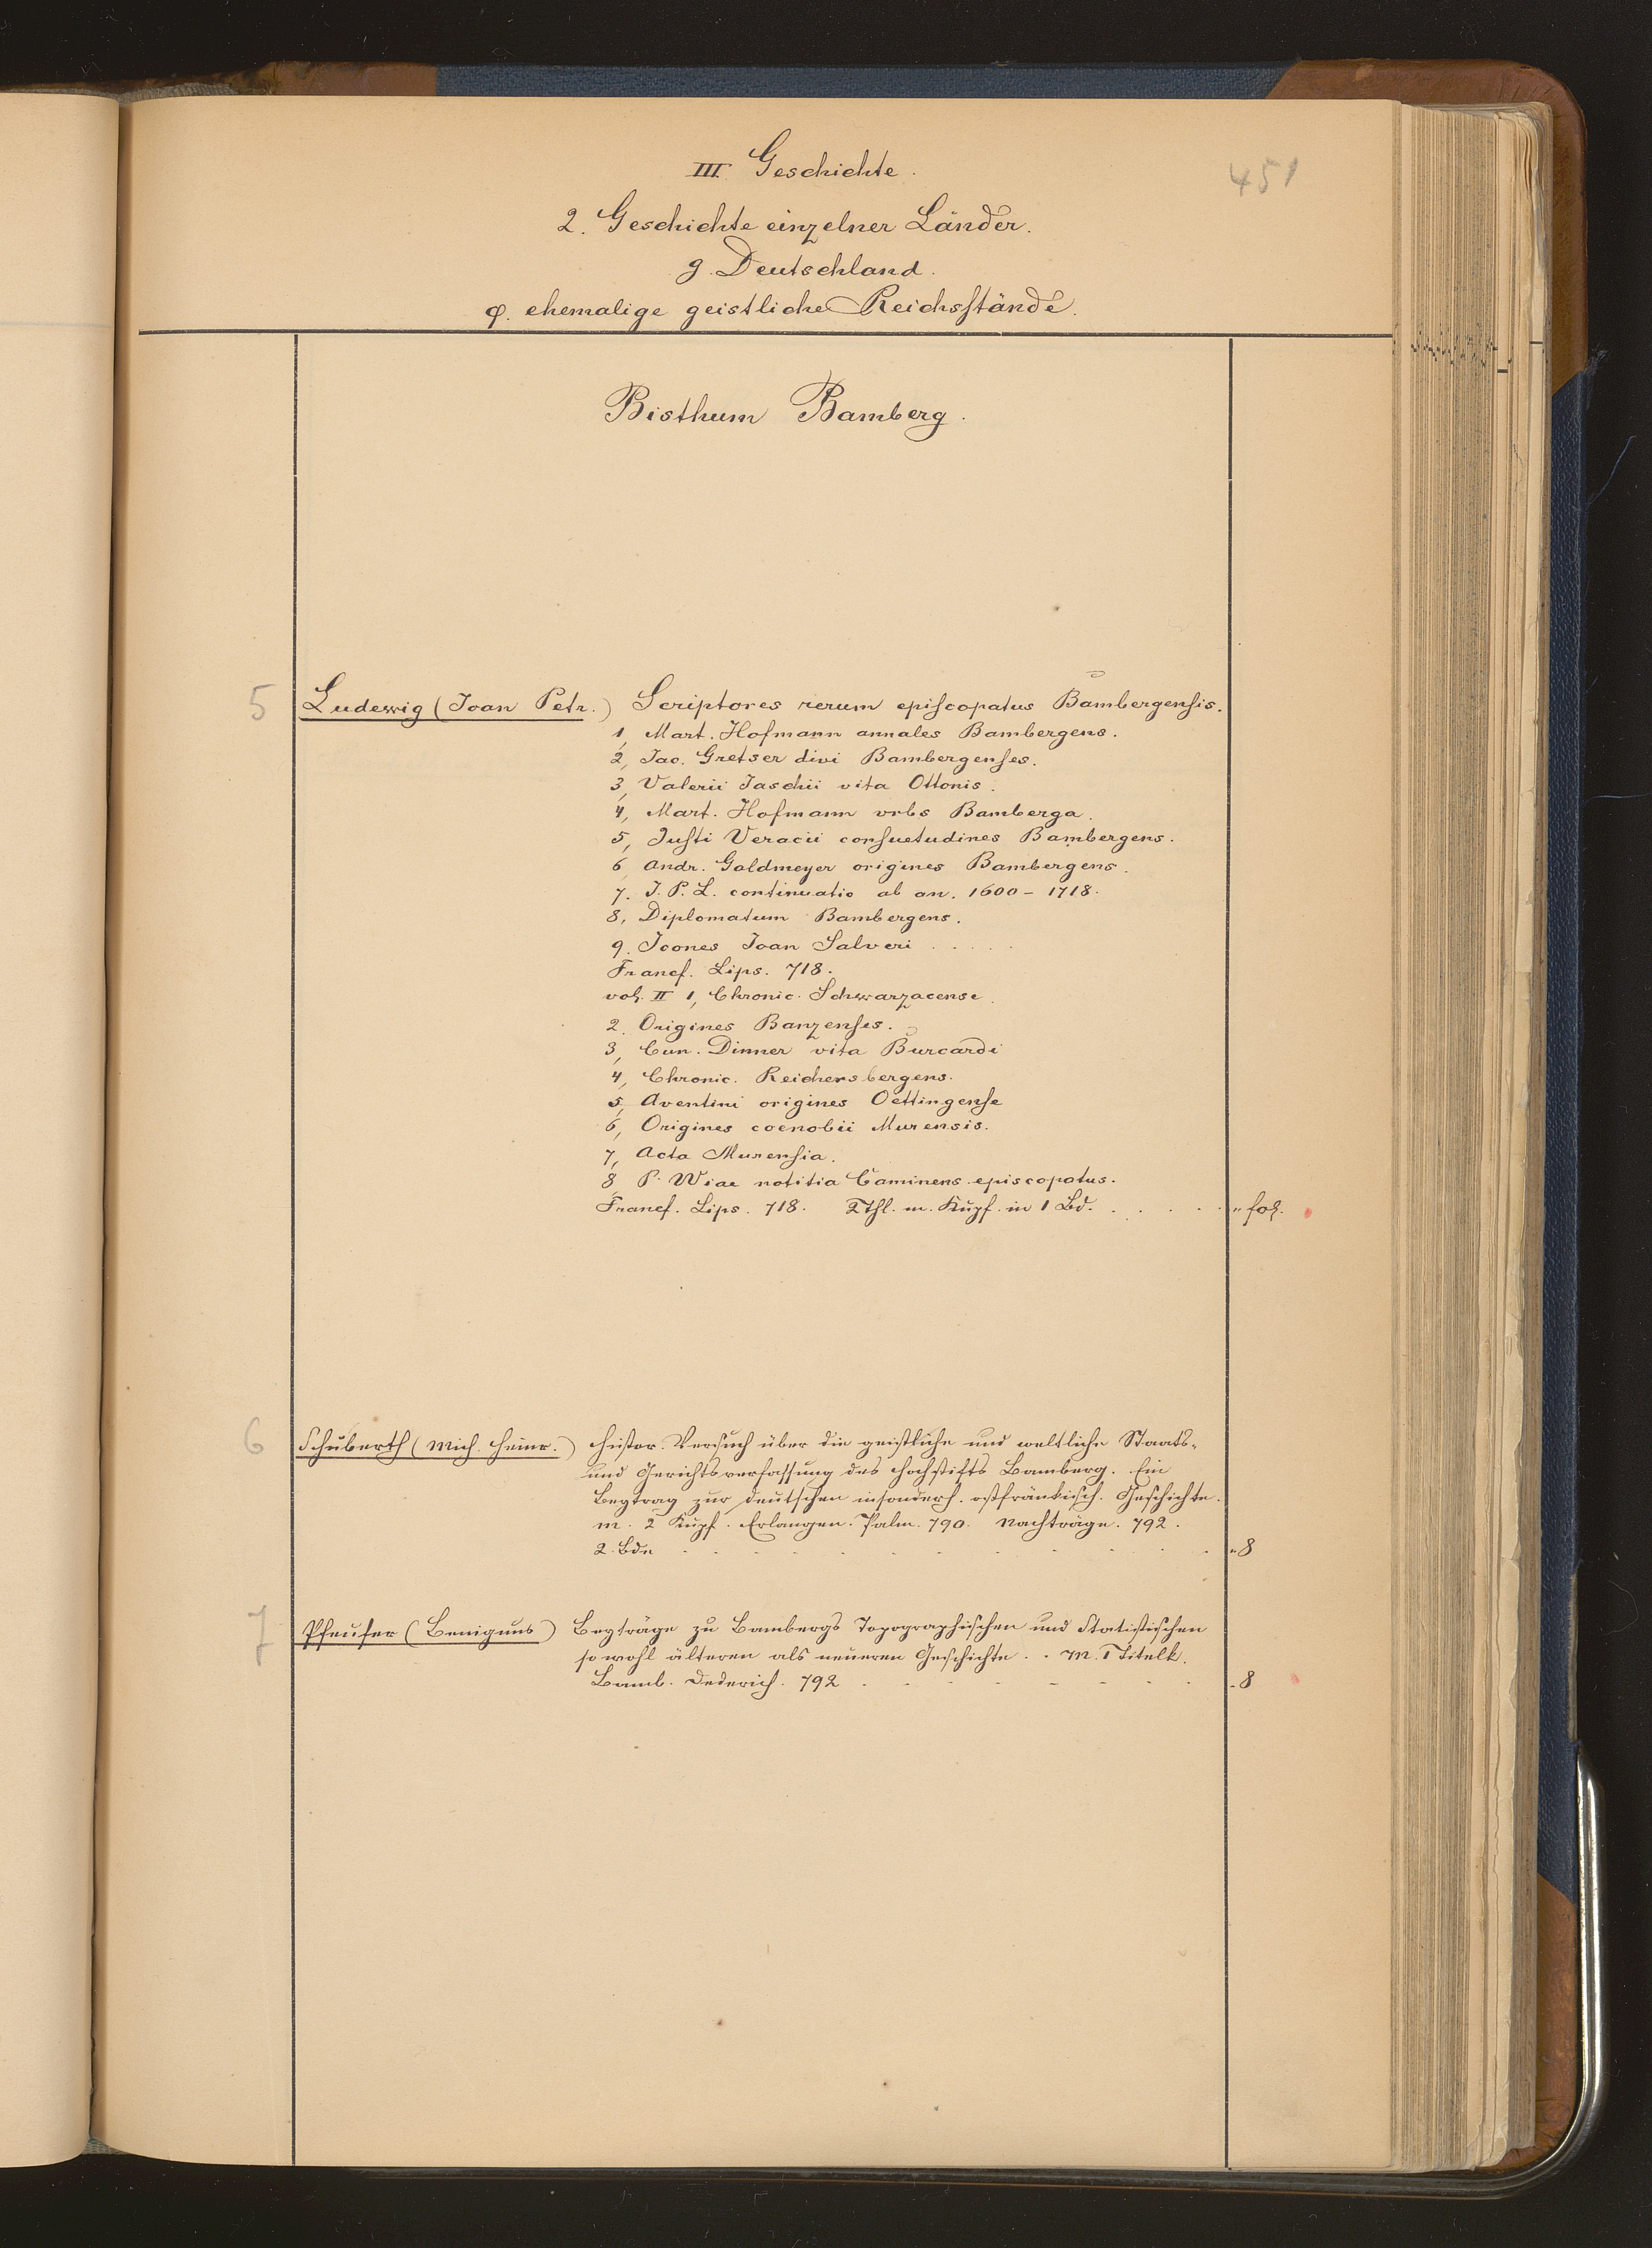 III. Geschichte.
451
2. Geschichte einzelner Länder.
g. Deutschland.
φ. ehemalige geistliche Reichsstände.
Bisthum Bamberg.
5 Ludewig (Ioan Petr.) Scriptores rerum episcopatus Bambergensis.
1, Mart. Hofmann annales Bambergens.
2, Jac. Gretser divi Bambergenses.
3, Valerii Jaschii vita Ottonis.
4, Mart. Hofmann vrbs Bamberga.
5, Justi Veracii consuetudines Bambergens.
6, Andr. Goldmeyer origines Bambergens.
7. J. P. L. continuatio ab an. 1600 - 1718.
8, Diplomatum Bambergens.
9. Icones Ioan Salveri . . . . .
Francf. Lips. 718.
vol. II 1, Chronic. Schwarzacense.
2. Origines Banzenses.
3, Cun. Dinner vita Burcardi
4, Chronic. Reichersbergens.
5, Aventini origines Oettingense
6, Origines coenobii Murensis.
7, Acta Murensia.
8 P. Wiae notitia Caminens episcopatus.
Francf. Lips. 718. 2 Thl. m. Kupf. in 1 Bd. . . . . . " fol.
6 Schuberth (Mich. Heinr.) Histor. Versuch über die geistliche und weltliche Staats-
und Gerichtsverfassung des Hochstifts Bamberg. Ein
Beytrag zur deutschen insonderh. ostfränkisch. Geschichte.
m. 2 Kupf. Erlangen. Palm. 790. Nachträge. 792.
2. Bde . . . . . . . . . "8
7 Pfeufer (Benignus) Beyträge zu Bambergs Topographischen und Statistischen
so wohl älteren als neueren Geschichte . . m. 1 Titelk.
Bamb. Dederich. 792 . . . . . . . "8